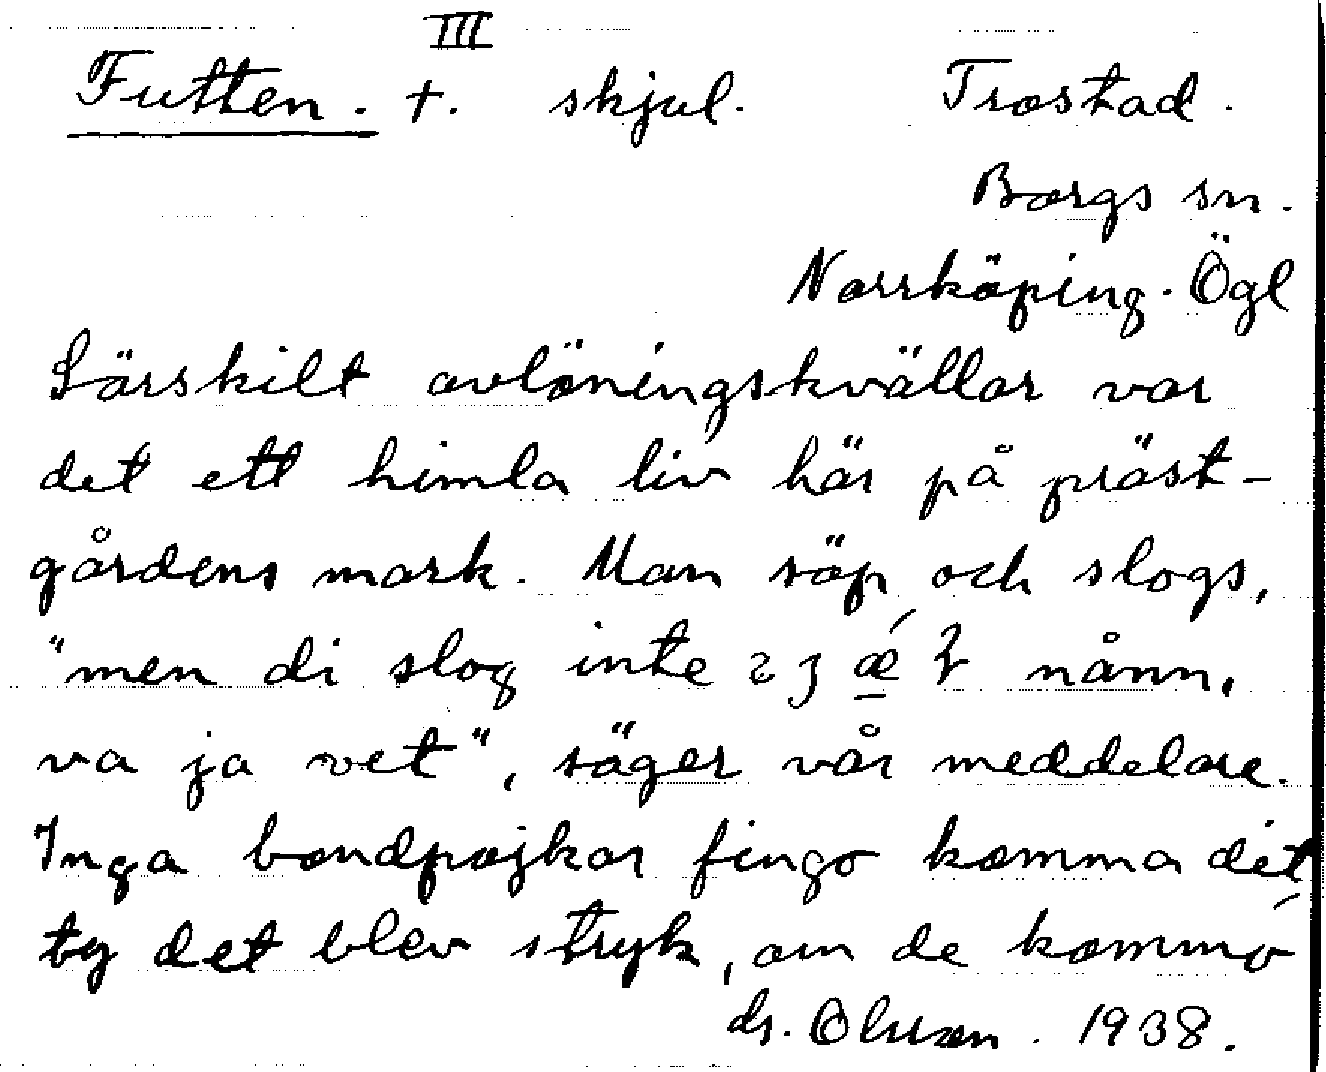 III
Futten. †. skjul. Trostad.
Borgs sn.
Norrköping. Ögl
Särskilt avlöningskvällar var
det ett himla liv här på präst-
gårdens mark. Man söp och slogs,
"men di slog inte nånn,
va ja vet", säger vår meddelare.
Inga bondpojkar fingo komma dit,
ty det blev stryk, om de kommo
1938.